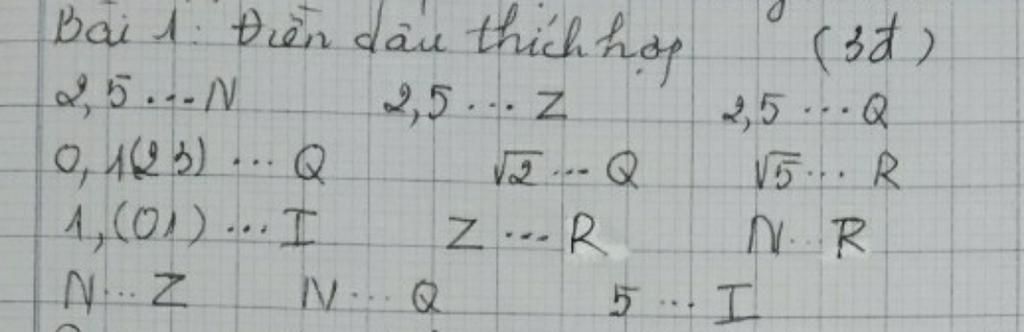 Bài 1: Điền dấu thích hợp (3đ)
2,5 ... N 2,5 ... Z 2,5 ... Q
0,1(23) ... Q √2 ... Q √5 ... R
1,(01) ... I Z ... R N ... R
N ... Z N ... Q 5 ... I